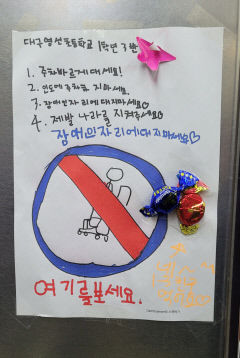 대구영선초등학교 1학년 3반
1. 주차바르게대세요!
2. 인도에주차료 지마세요.
3. 장애인자리에대지마세요♡
4. 제발 나라를 지켜주세요♡
장애인자리에대지마세요♡
여기를보세요.